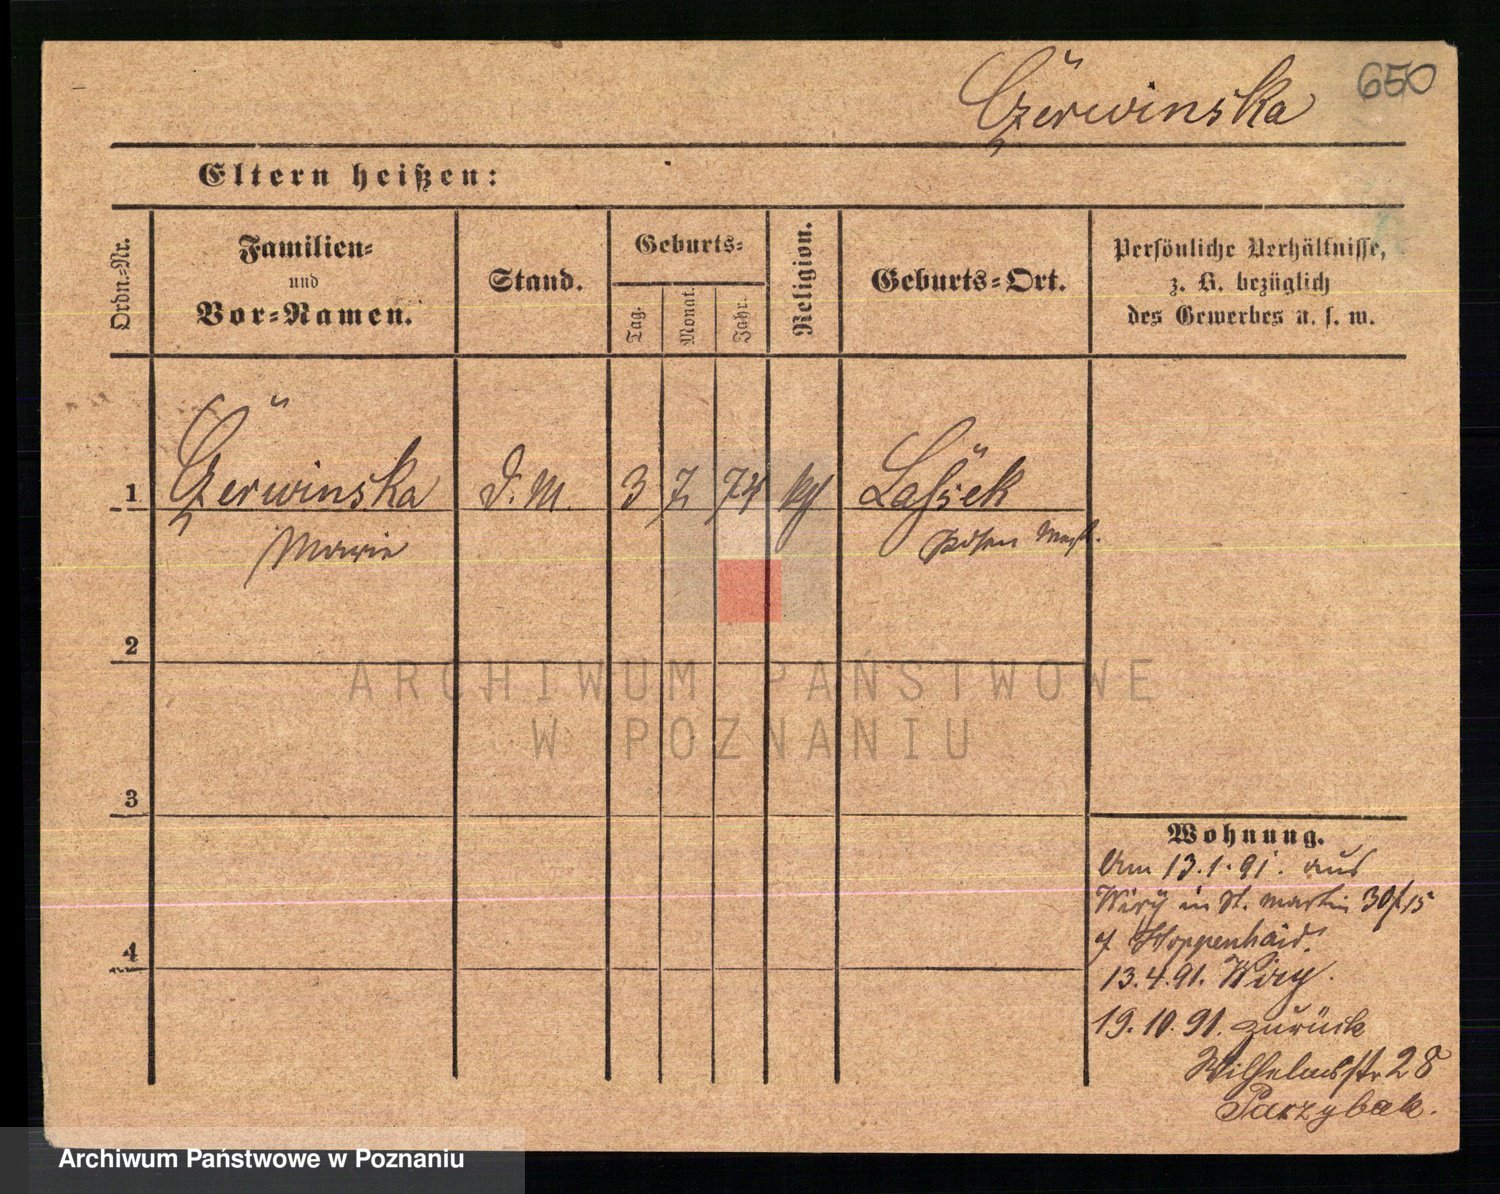 Czerwinska
650
Eltern heißen:
Ordn.-Nr.
Familien-
und
Vor-Namen.
Stand.
Geburts-
Tag.
Monat.
Jahr.
Religion.
Geburts-Ort.
Persönliche Verhältnisse,
z. B. bezüglich
des Gewerbes u. s. w.
1 Czerwinska D. M. 3 7 74 kth Lassek
Marie Posen West.
2
3
4
ARCHIWUM PAŃSTWOWE
W POZNANIU
Wohnung.
Am 13.1.91. aus
Wiry in St. Martin 30/15
Hoppenhaid.
13.4.91. Wiry.
19.10.91. zurück
Wilhelmsstr 28
Parzybok.
Archiwum Państwowe w Poznaniu